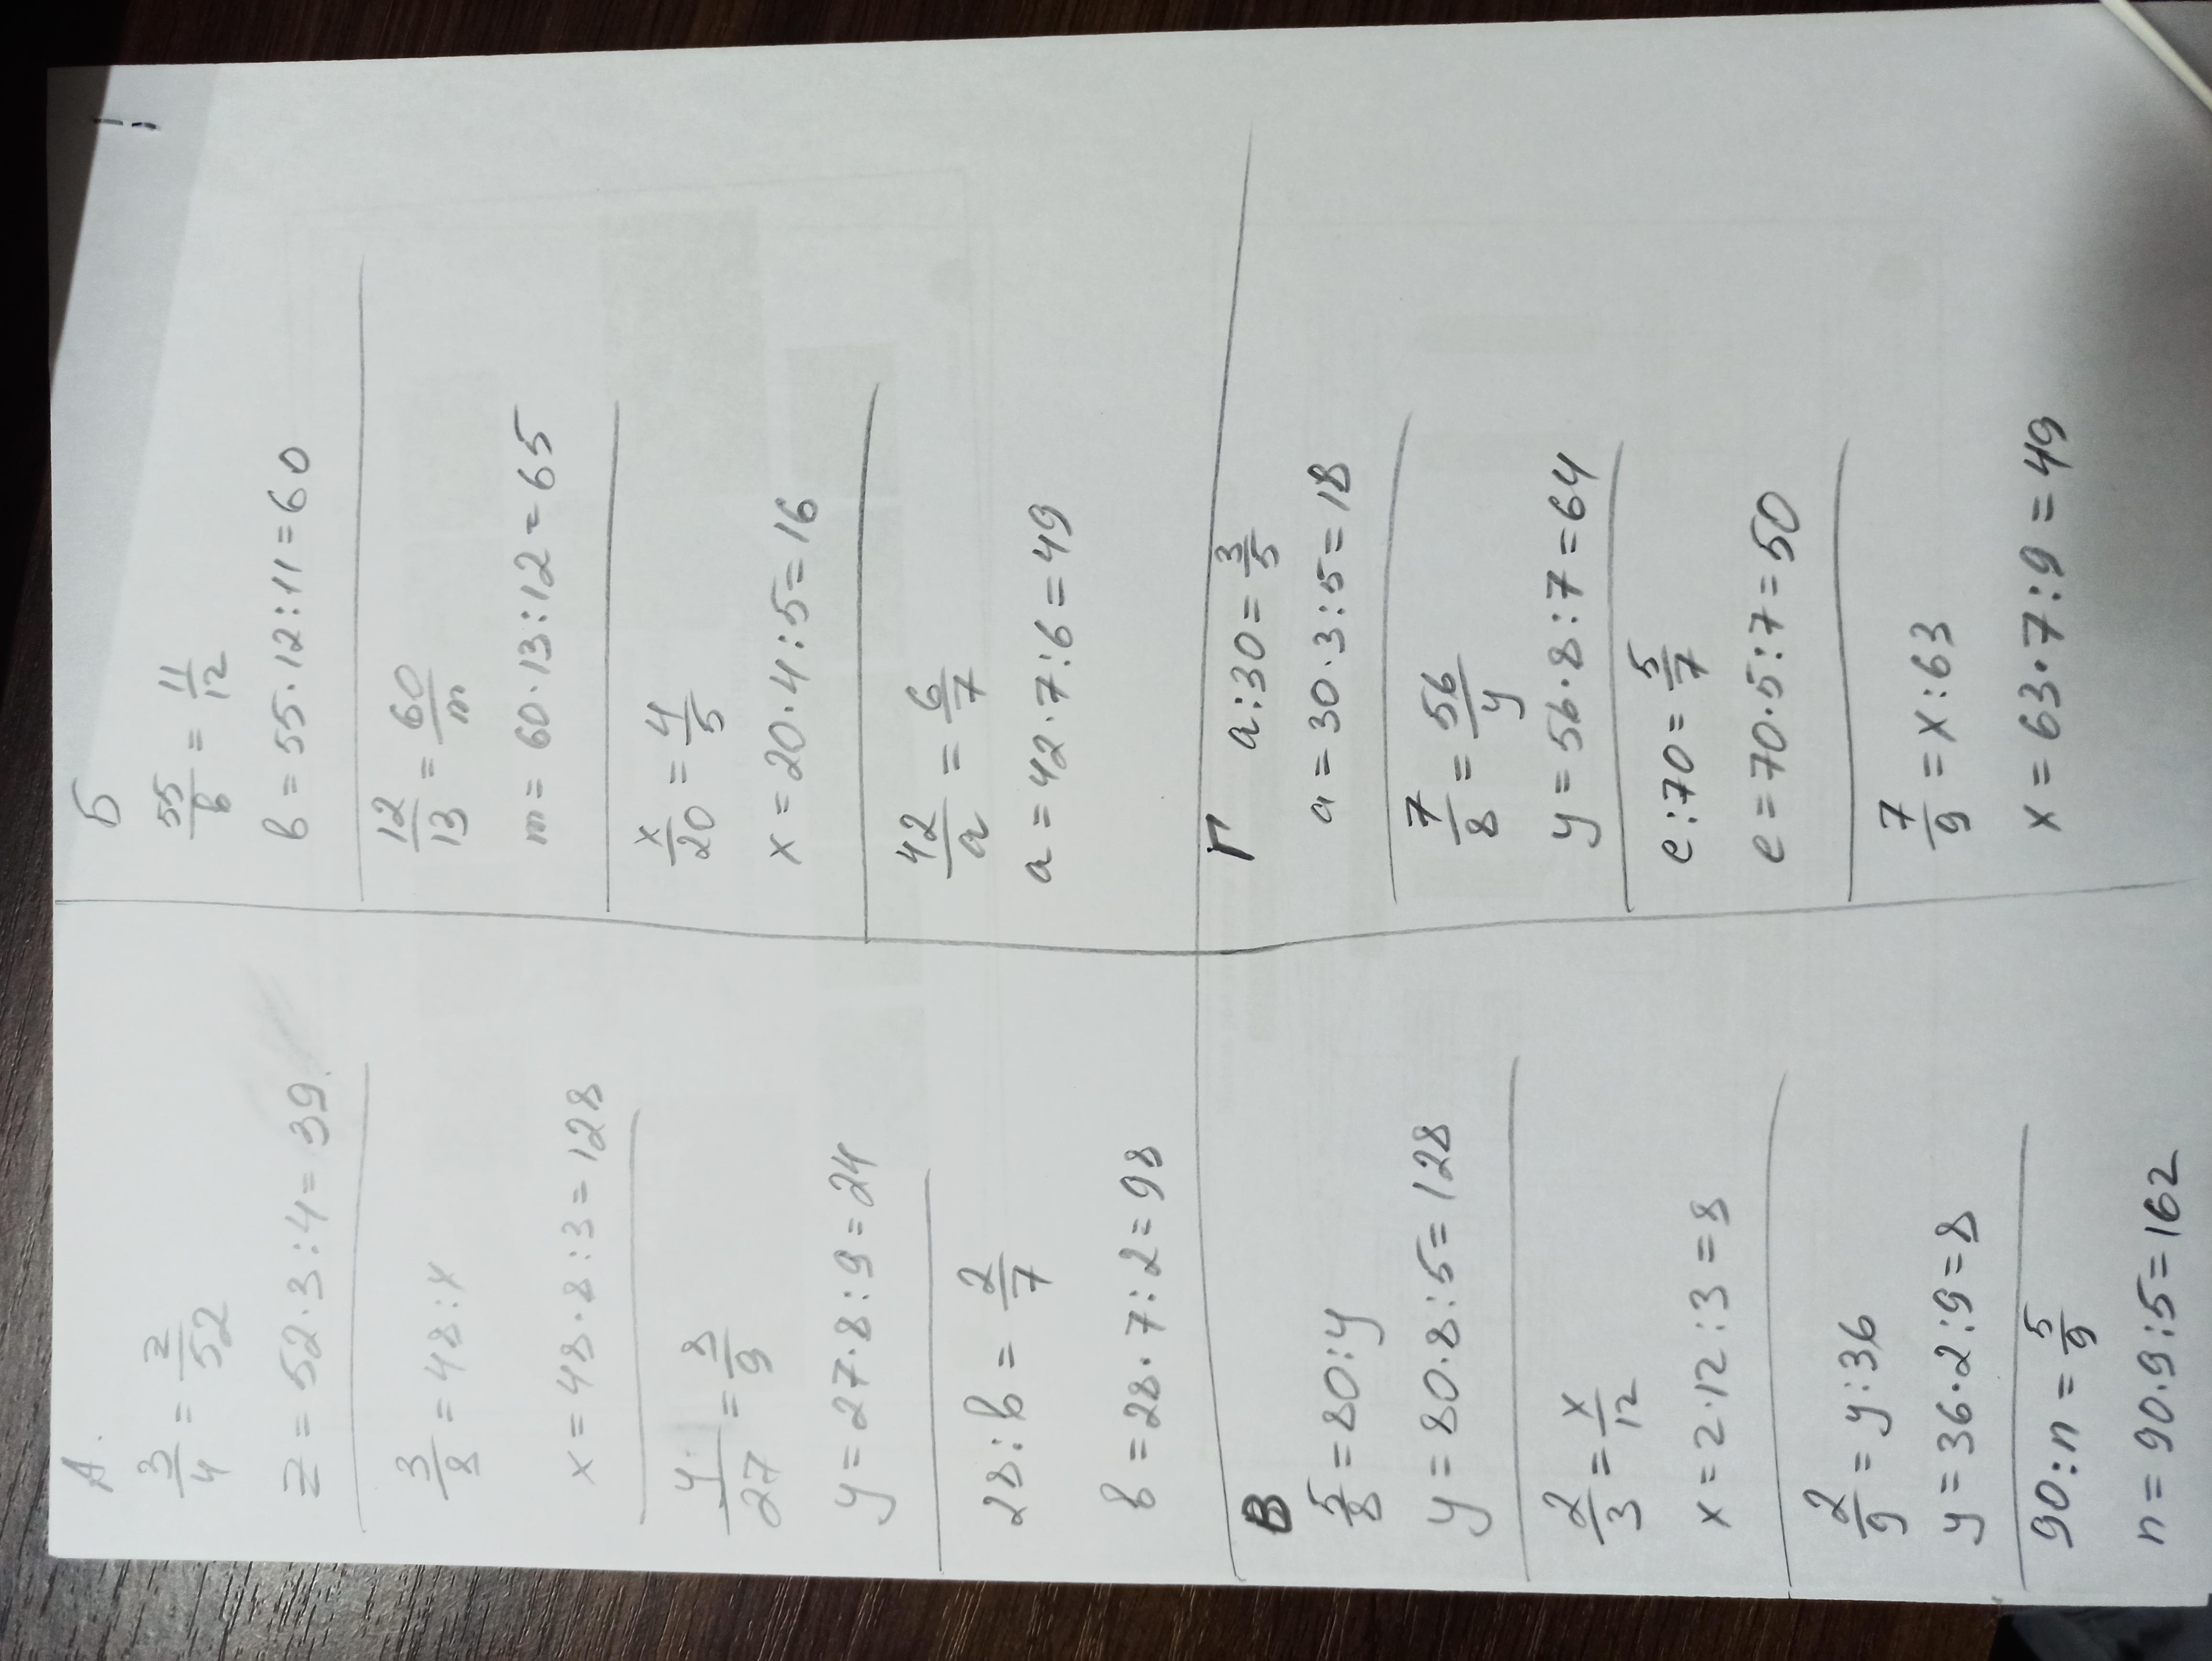 А.
3/4 = z/52
z = 52·3:4=39
3/8 = 48:x
x = 48·8:3=128
y/27 = 8/9
y = 27·8:9=24
28:в = 2/7
в = 28·7:2=98
Б
55/в = 11/12
в = 55·12:11=60
12/13 = 60/m
m = 60·13:12=65
x/20 = 4/5
x = 20·4:5=16
42/a = 6/7
a = 42·7:6=49
В
5/8 = 80:y
y = 80·8:5=128
2/3 = x/12
x = 2·12:3=8
2/9 = y:36
y = 36·2:9=8
90:n = 5/9
n = 90·9:5=162
Г a:30 = 3/5
a = 30·3:5=18
7/8 = 56/y
y = 56·8:7=64
e:70 = 5/7
e = 70·5:7=50
7/9 = x:63
x = 63·7:9=49